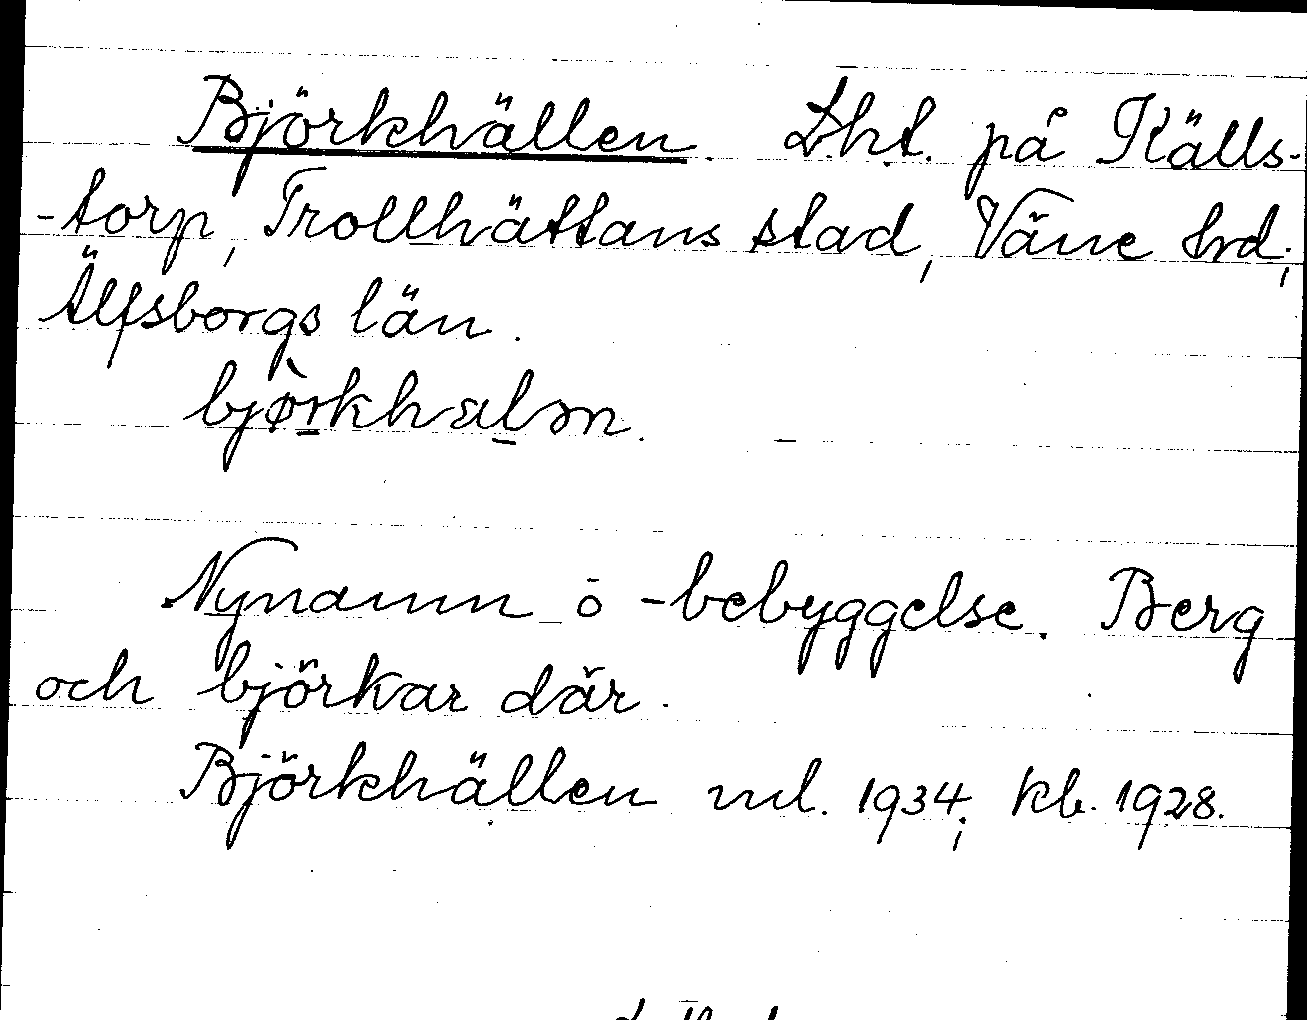 Björkhällen. Lht. på Källs-
-torp, Trollhättans stad, Väne hd,
Älfsborgs län.
bjørkhalm.
Nynamn o -bebyggelse. Berg
och björkar där.
Björkhällen ml. 1934; kb. 1928.